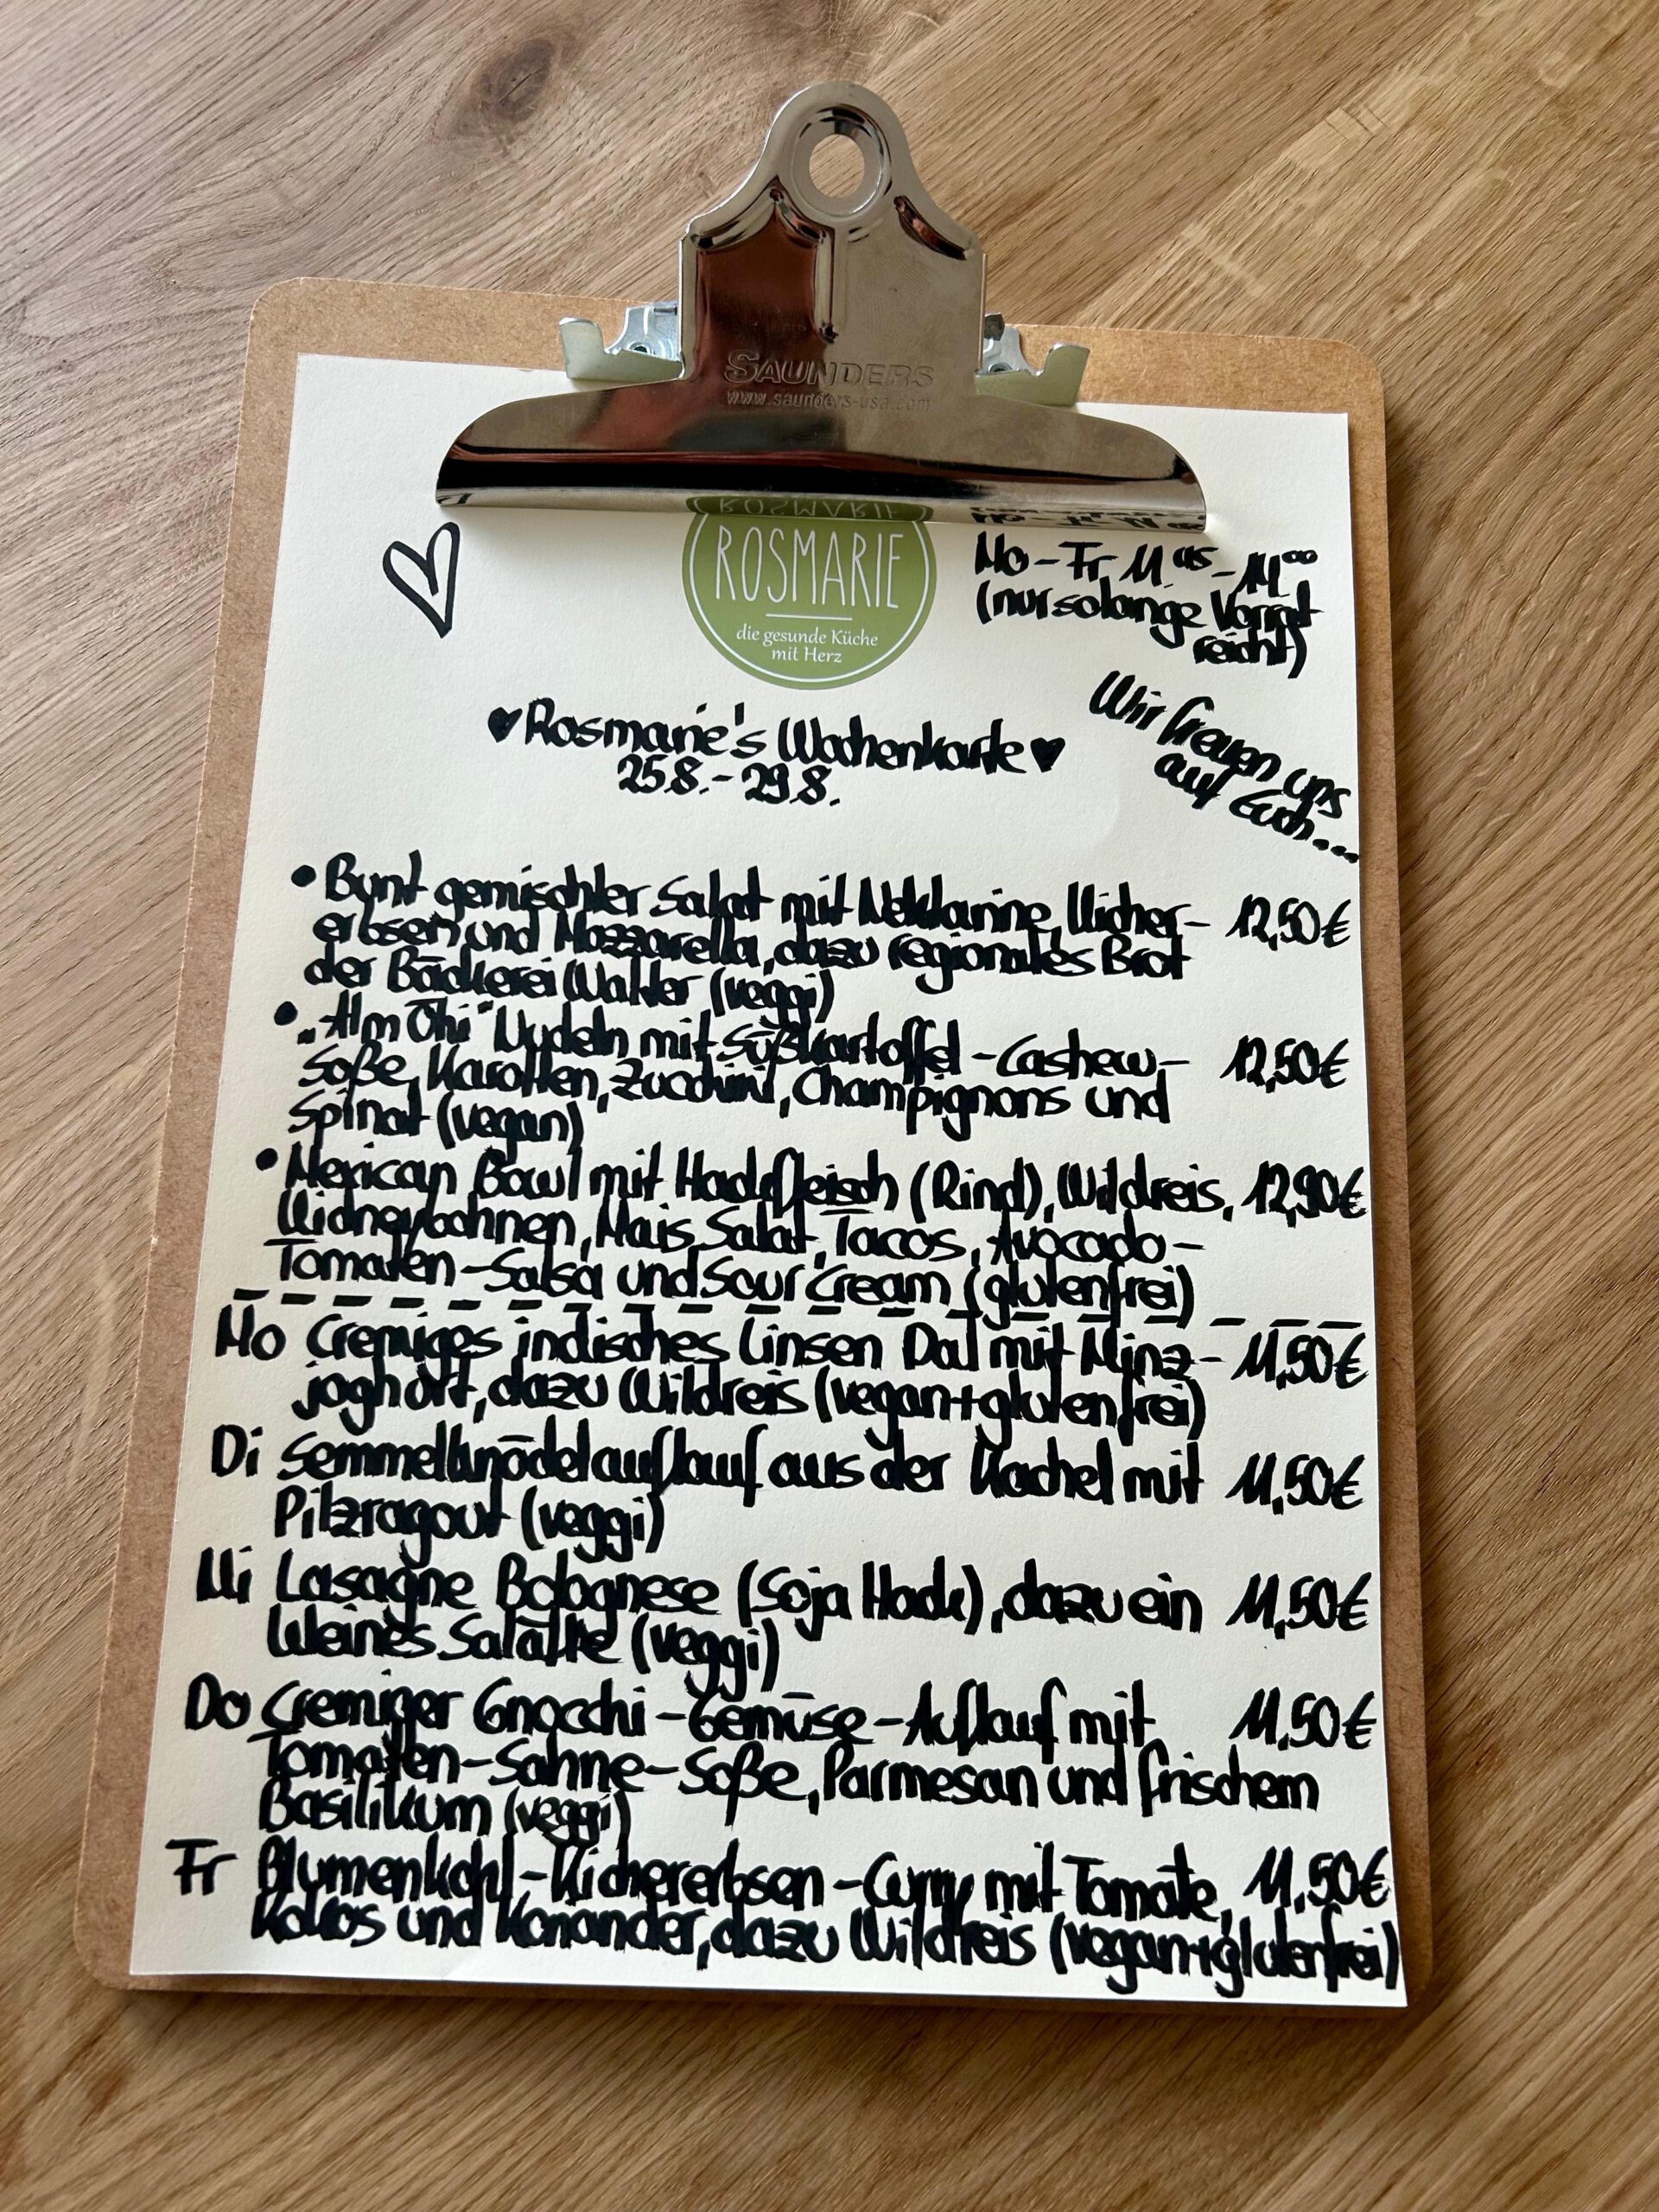 SAUNDERS
www.saunders-usa.com
ROSMARIE
die gesunde Küche
mit Herz
Mo-Fr 11⁴⁵-14⁰⁰
(nur solange Vorrat
reicht)
Wir freuen uns
auf Euch...
♥Rosmarie's Wochenkarte♥
25.8.-29.8.
• Bunt gemischter Salat mit Nektarine, Kicher- 12,50€
erbsen und Mozzarella, dazu regionales Brot
der Bäckerei Walter (veggi)
• „Alm Öhi" Nudeln mit Süßkartoffel-Cashew- 12,50€
Soße, Karotten, Zucchini, Champignons und
Spinat (vegan)
• Mexican Bowl mit Hackfleisch (Rind), Wildreis, 12,90€
Kidneybohnen, Mais, Salat, Tacos, Avocado-
Tomaten-Salsa und Sour Cream (glutenfrei)
Mo Cremiges indisches Linsen Dal mit Minz- 11,50€
joghurt, dazu Wildreis (vegan+glutenfrei)
Di Semmelknödelauflauf aus der Kachel mit 11,50€
Pilzragout (veggi)
Mi Lasagne Bolognese (Soja Hack), dazu ein 11,50€
kleines Salätle (veggi)
Do Cremiger Gnocchi-Gemüse-Auflauf mit 11,50€
Tomaten-Sahne-Soße, Parmesan und frischem
Basilikum (veggi)
Fr Blumenkohl-Kichererbsen-Curry mit Tomate, 11,50€
Kokos und Koriander, dazu Wildreis (vegan+glutenfrei)